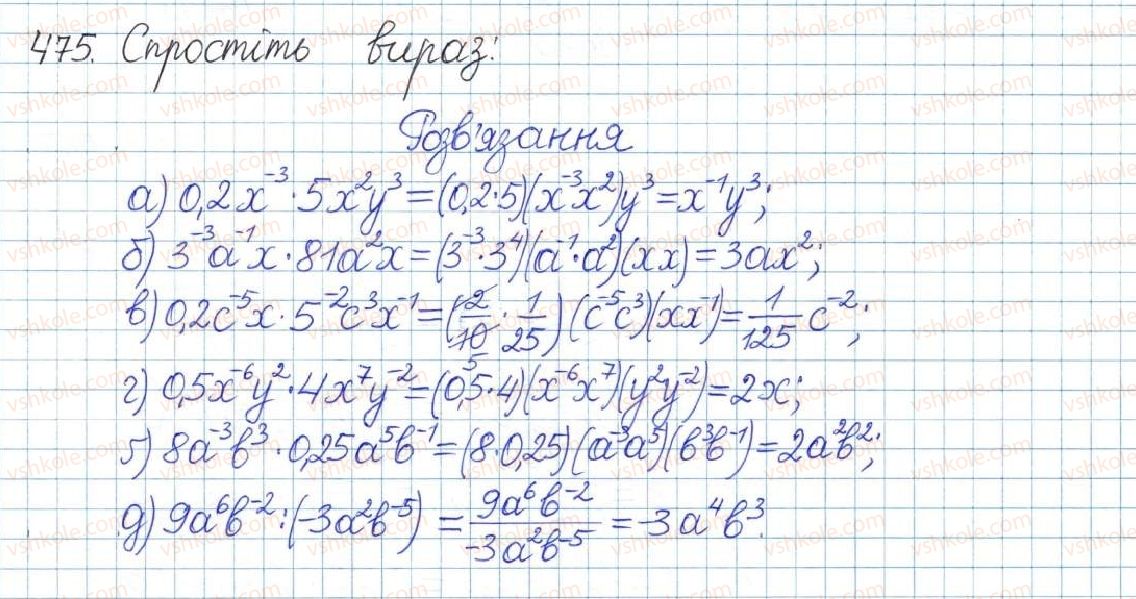 475. Спростіть вираз:
Розв'язання
а) 0,2x⁻³ · 5x²y³ = (0,2·5)(x⁻³x²)y³ = x⁻¹y³;
б) 3⁻³a⁻¹x · 81a²x = (3⁻³·3⁴)(a⁻¹·a²)(xx) = 3ax²;
в) 0,2c⁻⁵x · 5⁻²c³x⁻¹ = (2/10 5 · 1/25)(c⁻⁵c³)(xx⁻¹) = 1/125 c⁻²;
г) 0,5x⁻⁶y² · 4x⁷y⁻² = (0,5·4)(x⁻⁶x⁷)(y²y⁻²) = 2x;
ґ) 8a⁻³b³ · 0,25a⁵b⁻¹ = (8·0,25)(a⁻³a⁵)(b³b⁻¹) = 2a²b²;
д) 9a⁶b⁻² : (-3a²b⁻⁵) = 9a⁶b⁻²/-3a²b⁻⁵ = -3a⁴b³.